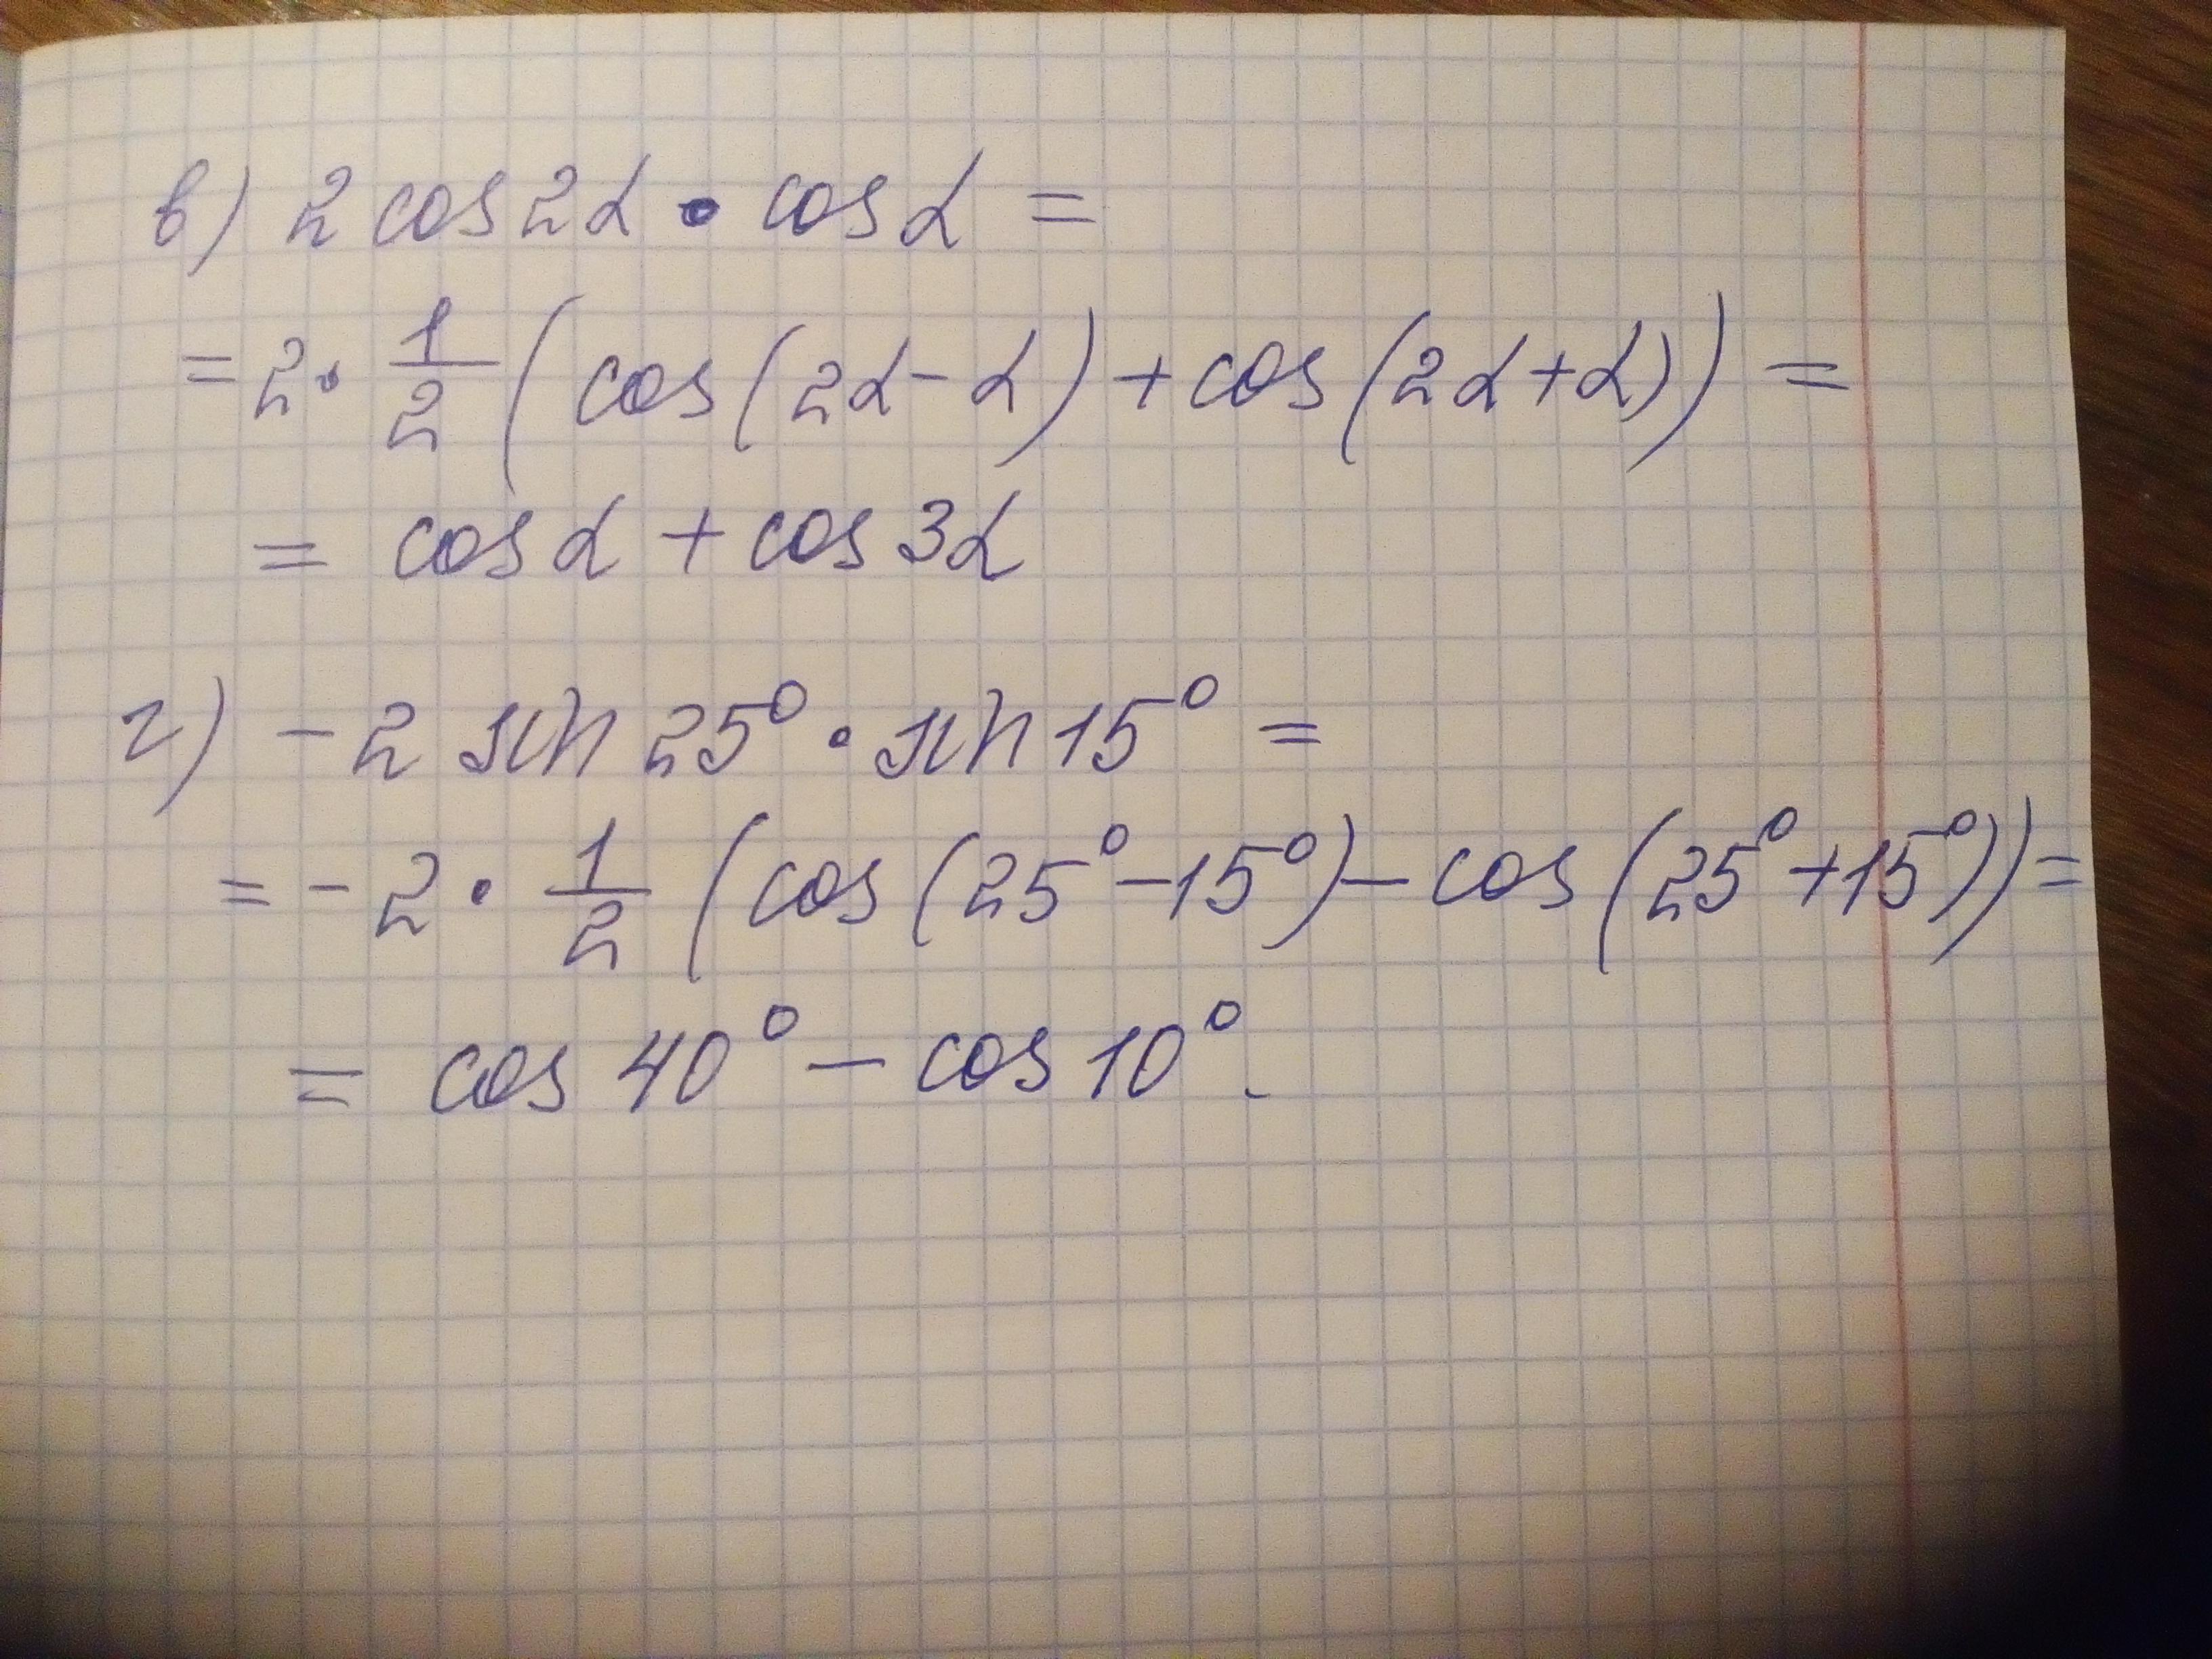 в) 2 cos 2α • cos α =
= 2 · 1/2 (cos(2α - α) + cos(2α + α)) =
= cos α + cos 3α
г) - 2 sin 25° · sin 15° =
= - 2 · 1/2 (cos(25° - 15°) - cos(25° + 15°)) =
= cos 40° - cos 10°.